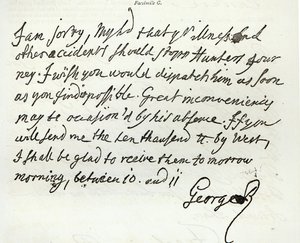 Facsimile G.
I am sorry, Mylrd that yr illness and
other accidents should stopp Hunters Jour
ney. I wish you would dispatch him as soon
as you find possible. Great inconveniency
may be occasion'd by his absence. If you
will send me the ten thousand tt. by West,
I shall be glad to receive them to morrow
morning, between 10. and 11
George R